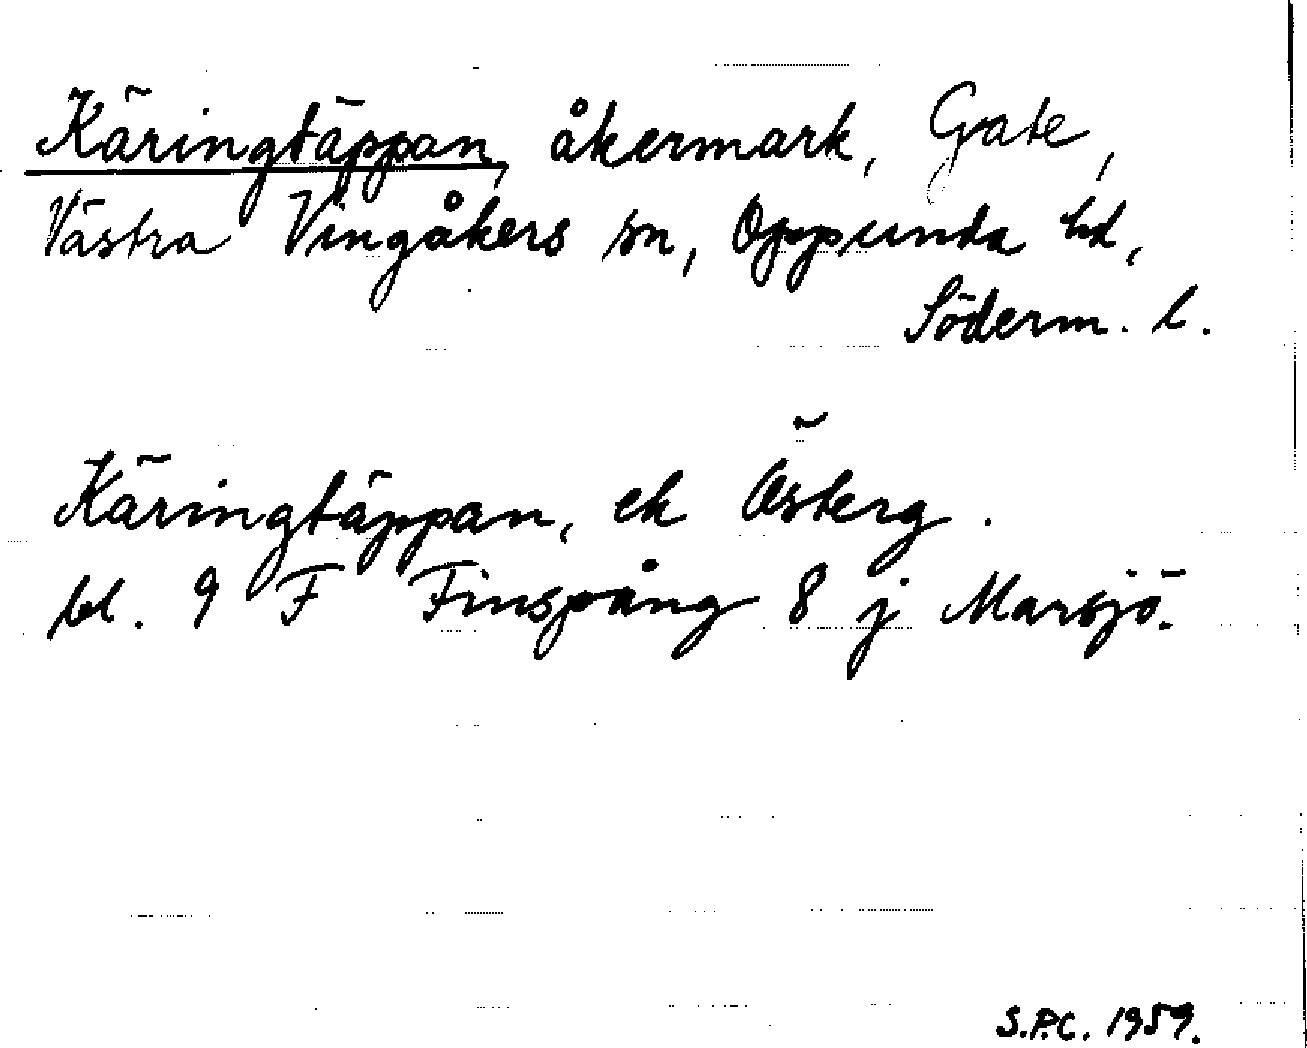 Käringtäppan, åkermark, Gate,
Västra Vingåkers sn, Oppunda hd,
Söderm. l.
Käringtäppan, ek Österg.
bl. 9 F Finspång 8 j Marsjö.
S.P.C. 1959.